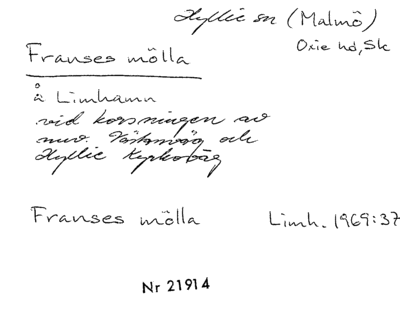 Hyllie sn (Malmö)
Oxie hd, Sk
Franses mölla
å Limhamn
vid korsningen av
nuv. och
Hyllie Kyrkoväg
Franses mölla Limh. 1969:37
Nr 21914